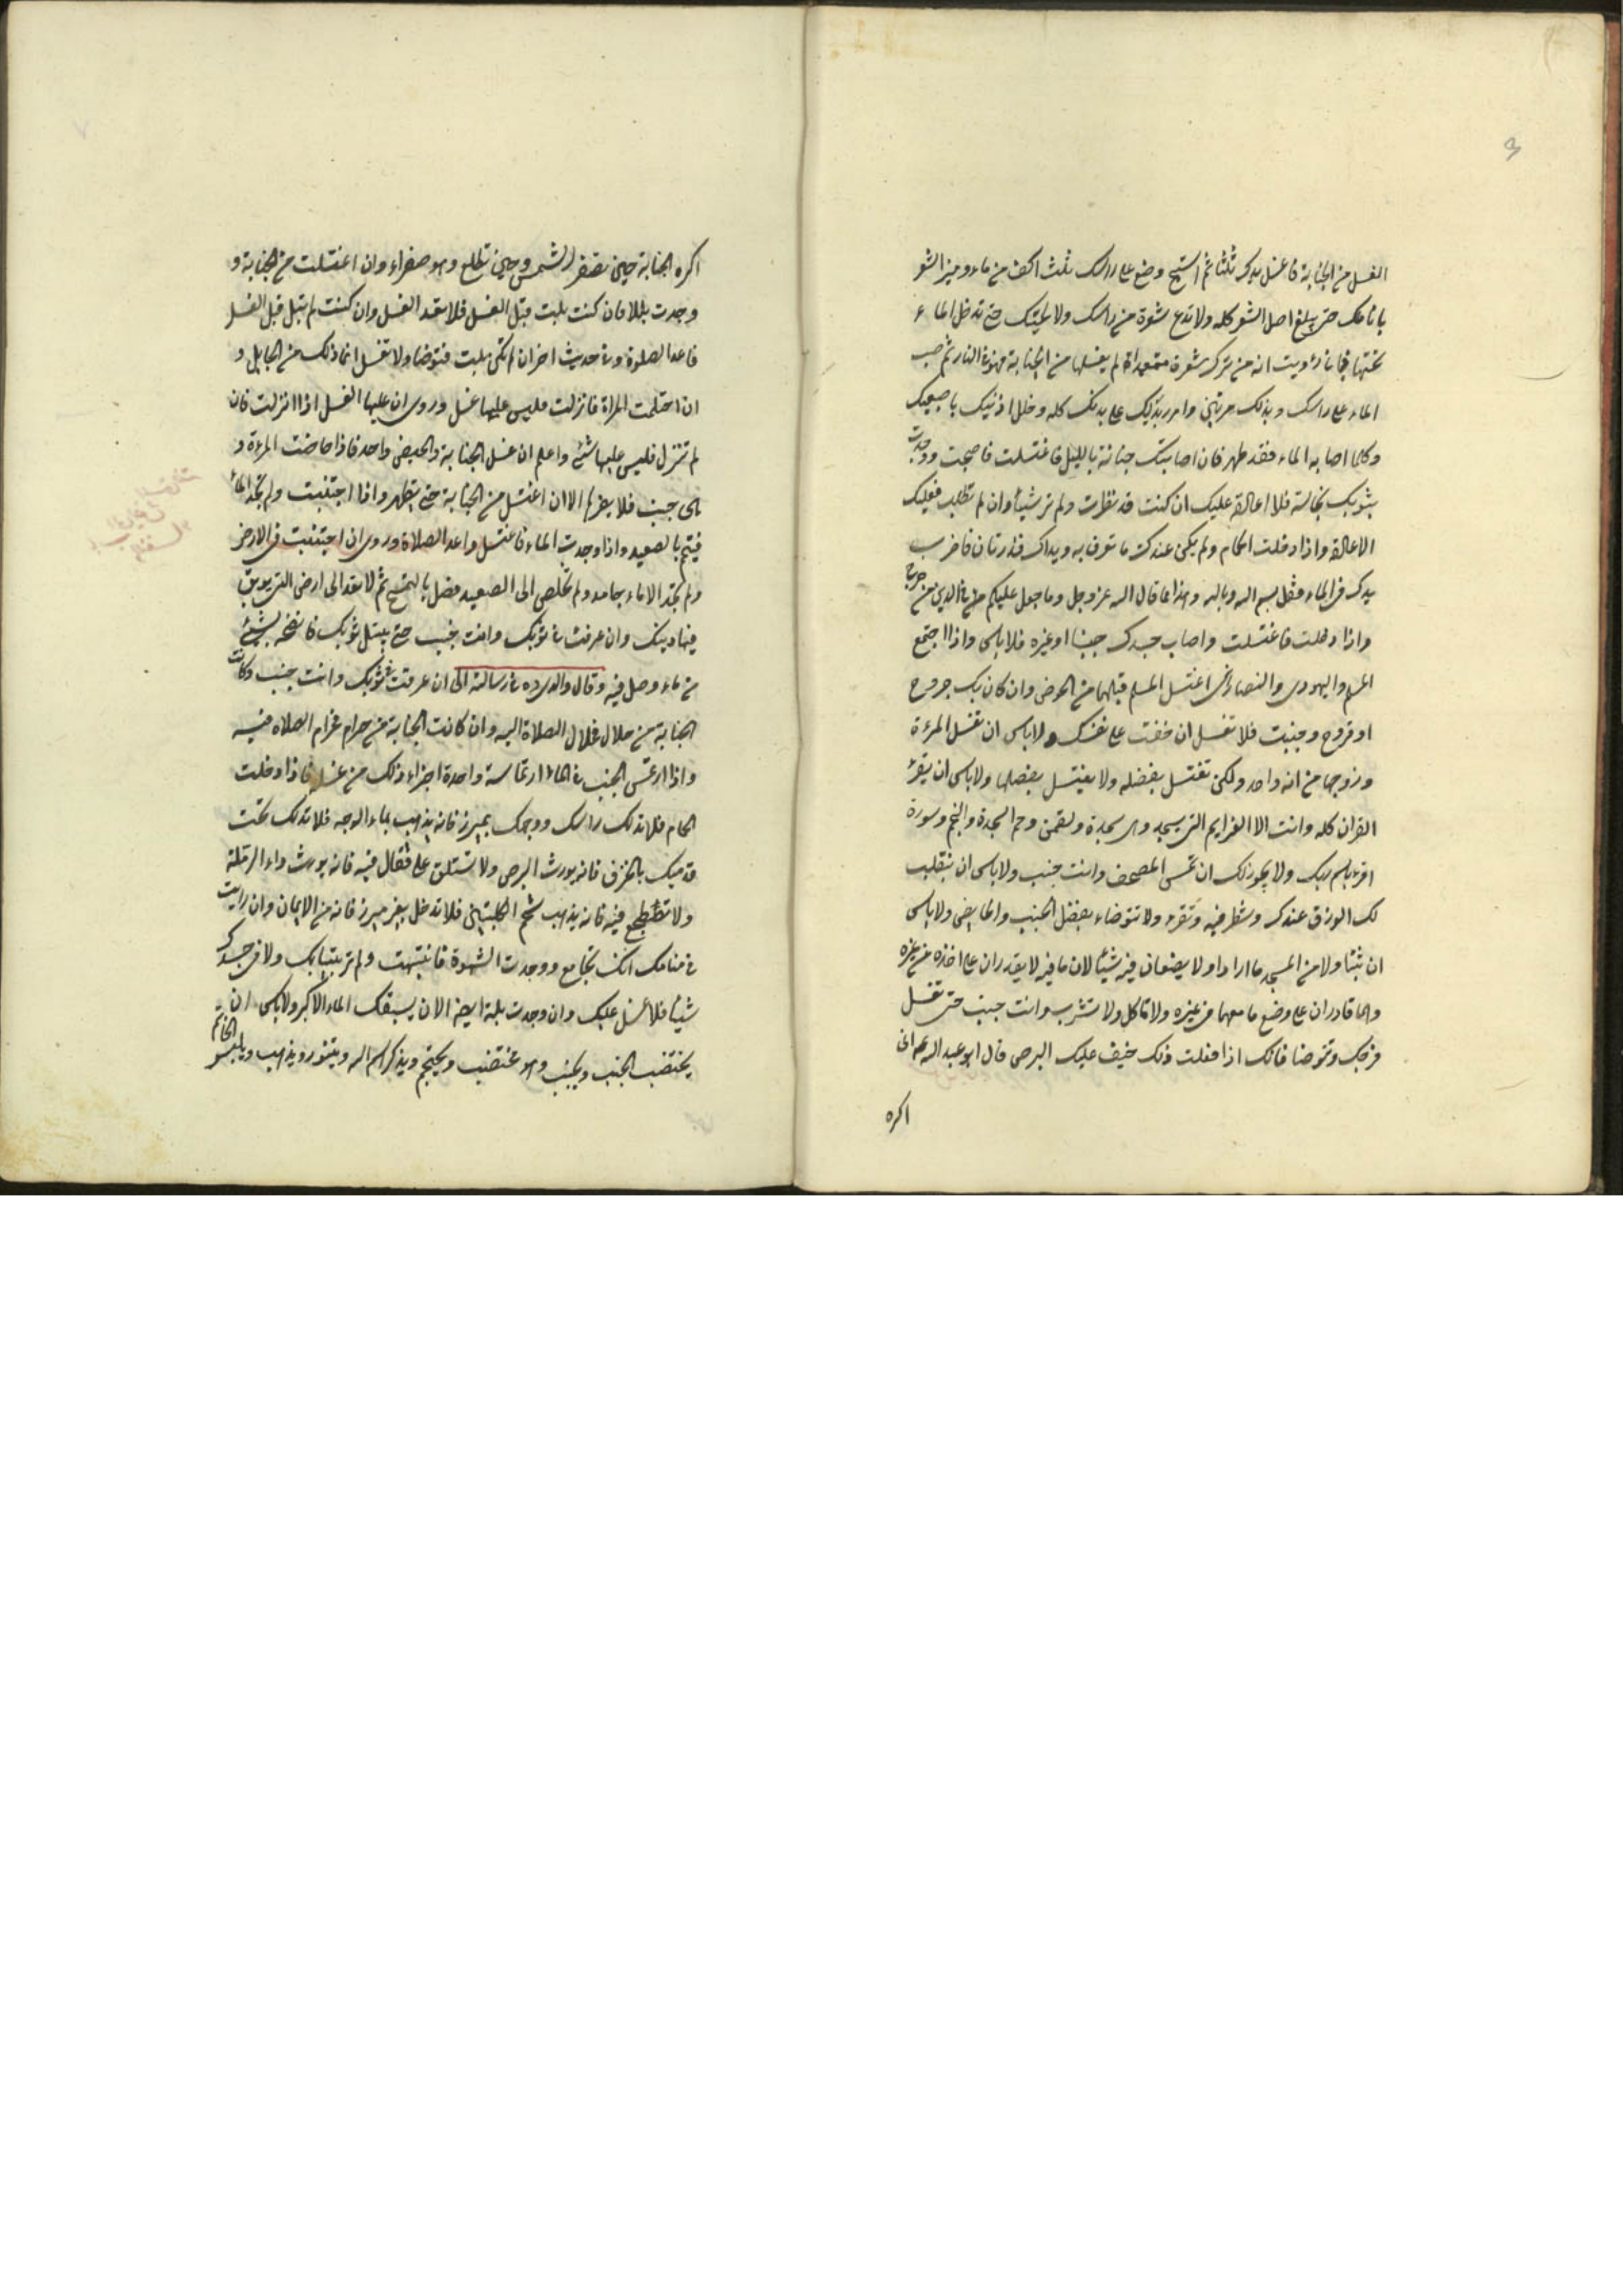 الغسل من الجنابة فاغسل يدك ثلثا ثم استنج وضع على راسك ثلث اكف من ماء وميز الشعر
باناملك حتى يبلغ اصل الشعر كله ولا تدع شعرة من راسك ولا لحيتك حتى تدخل الماء
تحتها فانه رويت انه من ترك شعرة متعمدا لم يغسلها من الجنابة فهو في النار ثم صب
الماء على راسك وبدنك مرتين وامرر يديك على بدنك كله وخلل اذنيك باصبعيك
وكلما اصابه الماء فقد طهر فان اصابتك جنابة بالليل فاغتسلت فاصبحت ووجدت
بثوبك نجاسة فلا اعادة عليك ان كنت قد نظرت ولم تر شيئا وان لم تطلب فعليك
الاعادة واذا دخلت الحمام ولم يكن عندك ما تغرف به ويداك قذرتان فاضرب
يدك في الماء وقل بسم الله وبالله وهذا مما قال الله عز وجل وما جعل عليكم في الدين من حرج
واذا دخلت فاغتسلت واصاب جسدك جنبا او غيره فلا باس واذا اجتمع
المسلم واليهودى والنصارى اغتسل المسلم قبلهما من الحوض وان كان بك جروح
او قروح وجنبت فلا تغسل ان خفت على نفسك ولا باس ان تغتسل المرءة
وزوجها من اناء واحد ولكن تغتسل بفضله ولا يغتسل بفضلها ولا باس ان يقرء
القران كله وانت الا العزايم التى يسجد وهى سجدة ولقمن وحم السجدة والنجم وسورة
اقرء باسم ربك ولا يجوز لك ان تمس المصحف وانت جنب ولا باس ان ينقلب
لك الورق عندك وينظر فيه وتقرء ولا تتوضاء بفضل الجنب والحايض ولا باس
ان يتناولا من المسجد ما ارادا ولا يضعان فيه شيئا لان ما فيه لا يقدران على اخذه من غيره
وهما قادران على وضع ما معهما في غيره ولا تاكل ولا تشرب وانت جنب حتى تغسل
فرجك وتتوضا فانك اذا فعلت ذلك خيف عليك البرص قال ابو عبد الله ع انى
اكره
اكره الجنابة حين تصفر الشمس وحين تطلع وهو صفراء وان اغتسلت من الجنابة و
وجدت بللا فان كنت بلت قبل الغسل فلا تعد الغسل وان كنت لم تبل قبل الغسل
فاعد الصلوة وفى حديث اخر ان لم تكن بلت فتوضا ولا تغسل انما ذلك من الحبايل و
ان احتلمت المراة فانزلت فليس عليها غسل وروى ان عليها الغسل اذا انزلت فان
لم تنزل فليس عليها شئ واعلم ان غسل الجنابة والحيض واحد فاذا حاضت المرءة و
هى جنب فلا يضرها الا ان اغتسل من الجنابة حتى يتطهر واذا اجتنبت ولم تجد الماء
فيتم بالصعيد واذا وجدت الماء فاغتسل واعد الصلاة وروى ان اجتنبت فى الارض
ولم تجد الا ماء جامد ولم تخلص الى الصعيد فصل بالتمسح ثم لا تعد الى ارض التى يوبق
فيها دينك وان عرقت فى ثوبك وانت جنب حتى يبتل ثوبك فانضحه بشئ
من ماء وصل فيه وقال والدى ره فى رسالته الى ان عرقت فى ثوبك وانت جنب وكانت
الجنابة من حلال فحلال الصلاة اليه وان كانت الجنابة من حرام فحرام الصلاه فيه
واذا ارتمس الجنب فى الماء ارتماسة واحدة اجزاء ذلك من غسله فاذا دخلت
الحمام فلا تدلك راسك ووجهك بميزر فانه يذهب بماء الوجه فلا تدلك تحت
قدميك بالخزف فانه يورث البرص ولا تستلق على قفاك فيه فانه يورث داء الرتيلة
ولا تضطجع فيه فانه يذهب شحم الكليتين فلا تدخل بغير ميزر فانه من الايمان وان رايت
فى منامك انك تجامع ووجدت الشهوة فانتبهت ولم تر بثيابك ولا فى جسدك
شيئا فلا غسل عليك وان وجدت بلة ايضا الا ان يسبقك الماء الاكبر ولا باس ان
يختضب الجنب ويجنب وهو مختضب ويحتجم ويذكر اسم الله ويتنور ويذبح ويلبس الخاتم